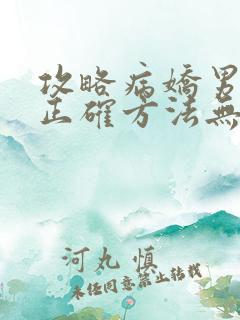 攻略病嬌男
正確方法無
河丸慎
未經同意禁止轉載